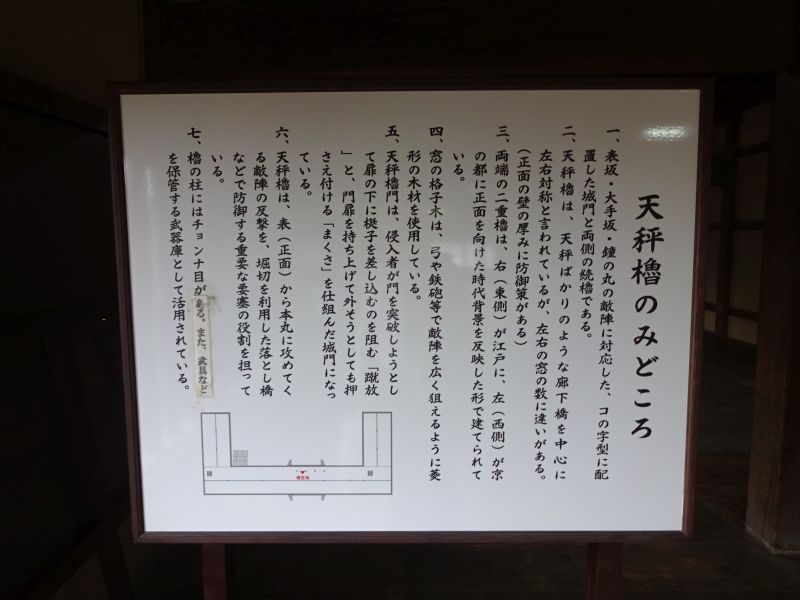 天秤櫓のみどころ
一、表坂・大手坂・鐘の丸の敵陣に対応した、コの字型に配
置した城門と両側の続櫓である。
二、天秤櫓は、天秤ばかりのような廊下橋を中心に
左右対称と言われているが、左右の窓の数に違いがある。
(正面の壁の厚みに防御策がある)
三、両端の二重櫓は、右(東側)が江戸に、左(西側)が京
の都に正面を向けた時代背景を反映した形で建てられて
いる。
四、窓の格子木は、弓や鉄砲等で敵陣を広く狙えるように菱
形の木材を使用している。
五、天秤櫓門は、侵入者が門を突破しようとし
て扉の下に梃子を差し込むのを阻む「蹴放
」と、門扉を持ち上げて外そうとしても押
さえ付ける「まぐさ」を仕組んだ城門になっ
ている。
六、天秤櫓は、表(正面)から本丸に攻めてく
る敵陣の反撃を、堀切を利用した落とし橋
などで防御する重要な要塞の役割を担って
いる。
七、櫓の柱にはチョンナ目がある。また、武具など
を保管する武器庫として活用されている。
現在地